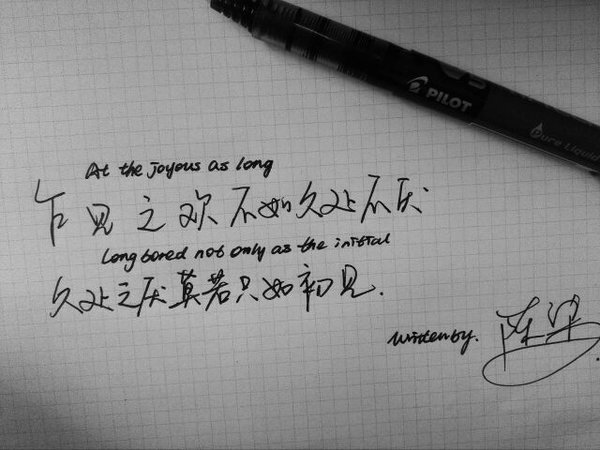 PILOT
Pure Liquid
At the joyous as long
乍见之欢不如久处不厌
Long bored not only as the initial
久处之厌莫若只如初见.
Written by.